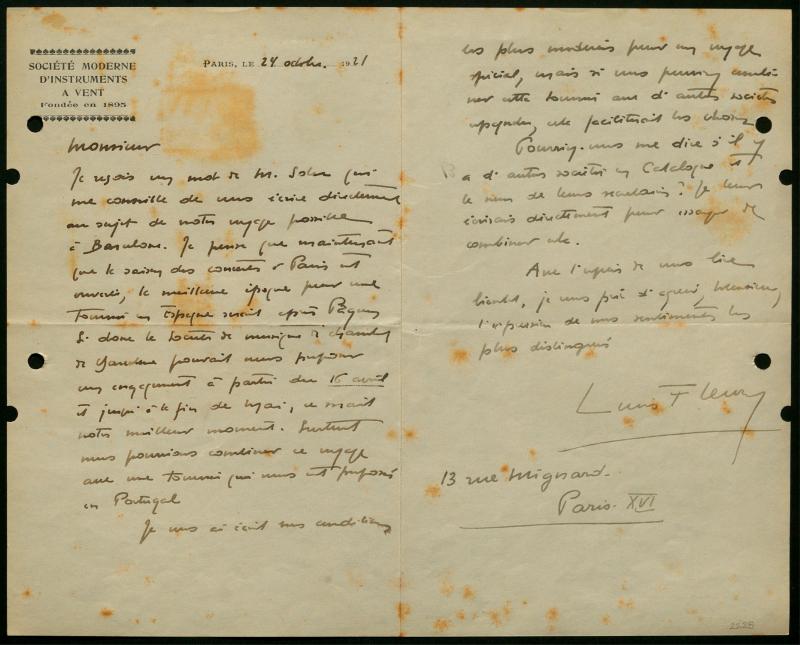 SOCIÉTÉ MODERNE
D'INSTRUMENTS
A VENT
Fondée en 1895
PARIS, LE 24 octobre 1921
Monsieur
Je reçois un mot de M. qui
me conseille de vous écrire directement
au sujet de notre voyage possible
à Barcelone. Je pense que maintenant
que la saison des concerts à Paris est
ouverte, la meilleure époque pour une
tournée en Espagne serait après Pâques
Si donc la société de musique de chambre
de Barcelone pouvait nous proposer
un engagement à partir du 16 avril
et jusqu'à la fin de Mai, ce serait
notre meilleur moment. Surtout
nous pourrions combiner ce voyage
avec une tournée qui nous est proposée
en Portugal
Je vous ai écrit nos conditions
les plus modérées pour un voyage
spécial, mais si nous pouvions combi
ner cette tournée avec d'autres sociétés
espagnoles, cela faciliterait les choses
Pourriez-vous me dire s'il y
a d'autres sociétés en Catalogne et
le nom de leurs secrétaires? Je leur
écrirais directement pour essayer de
combiner cela.
Avec l'espoir de vous lire
bientôt, je vous prie d'agréer, Monsieur,
l'expression de mes sentiments les
plus distingués
Louis Fleury
13 rue Mignard.
Paris. XVI